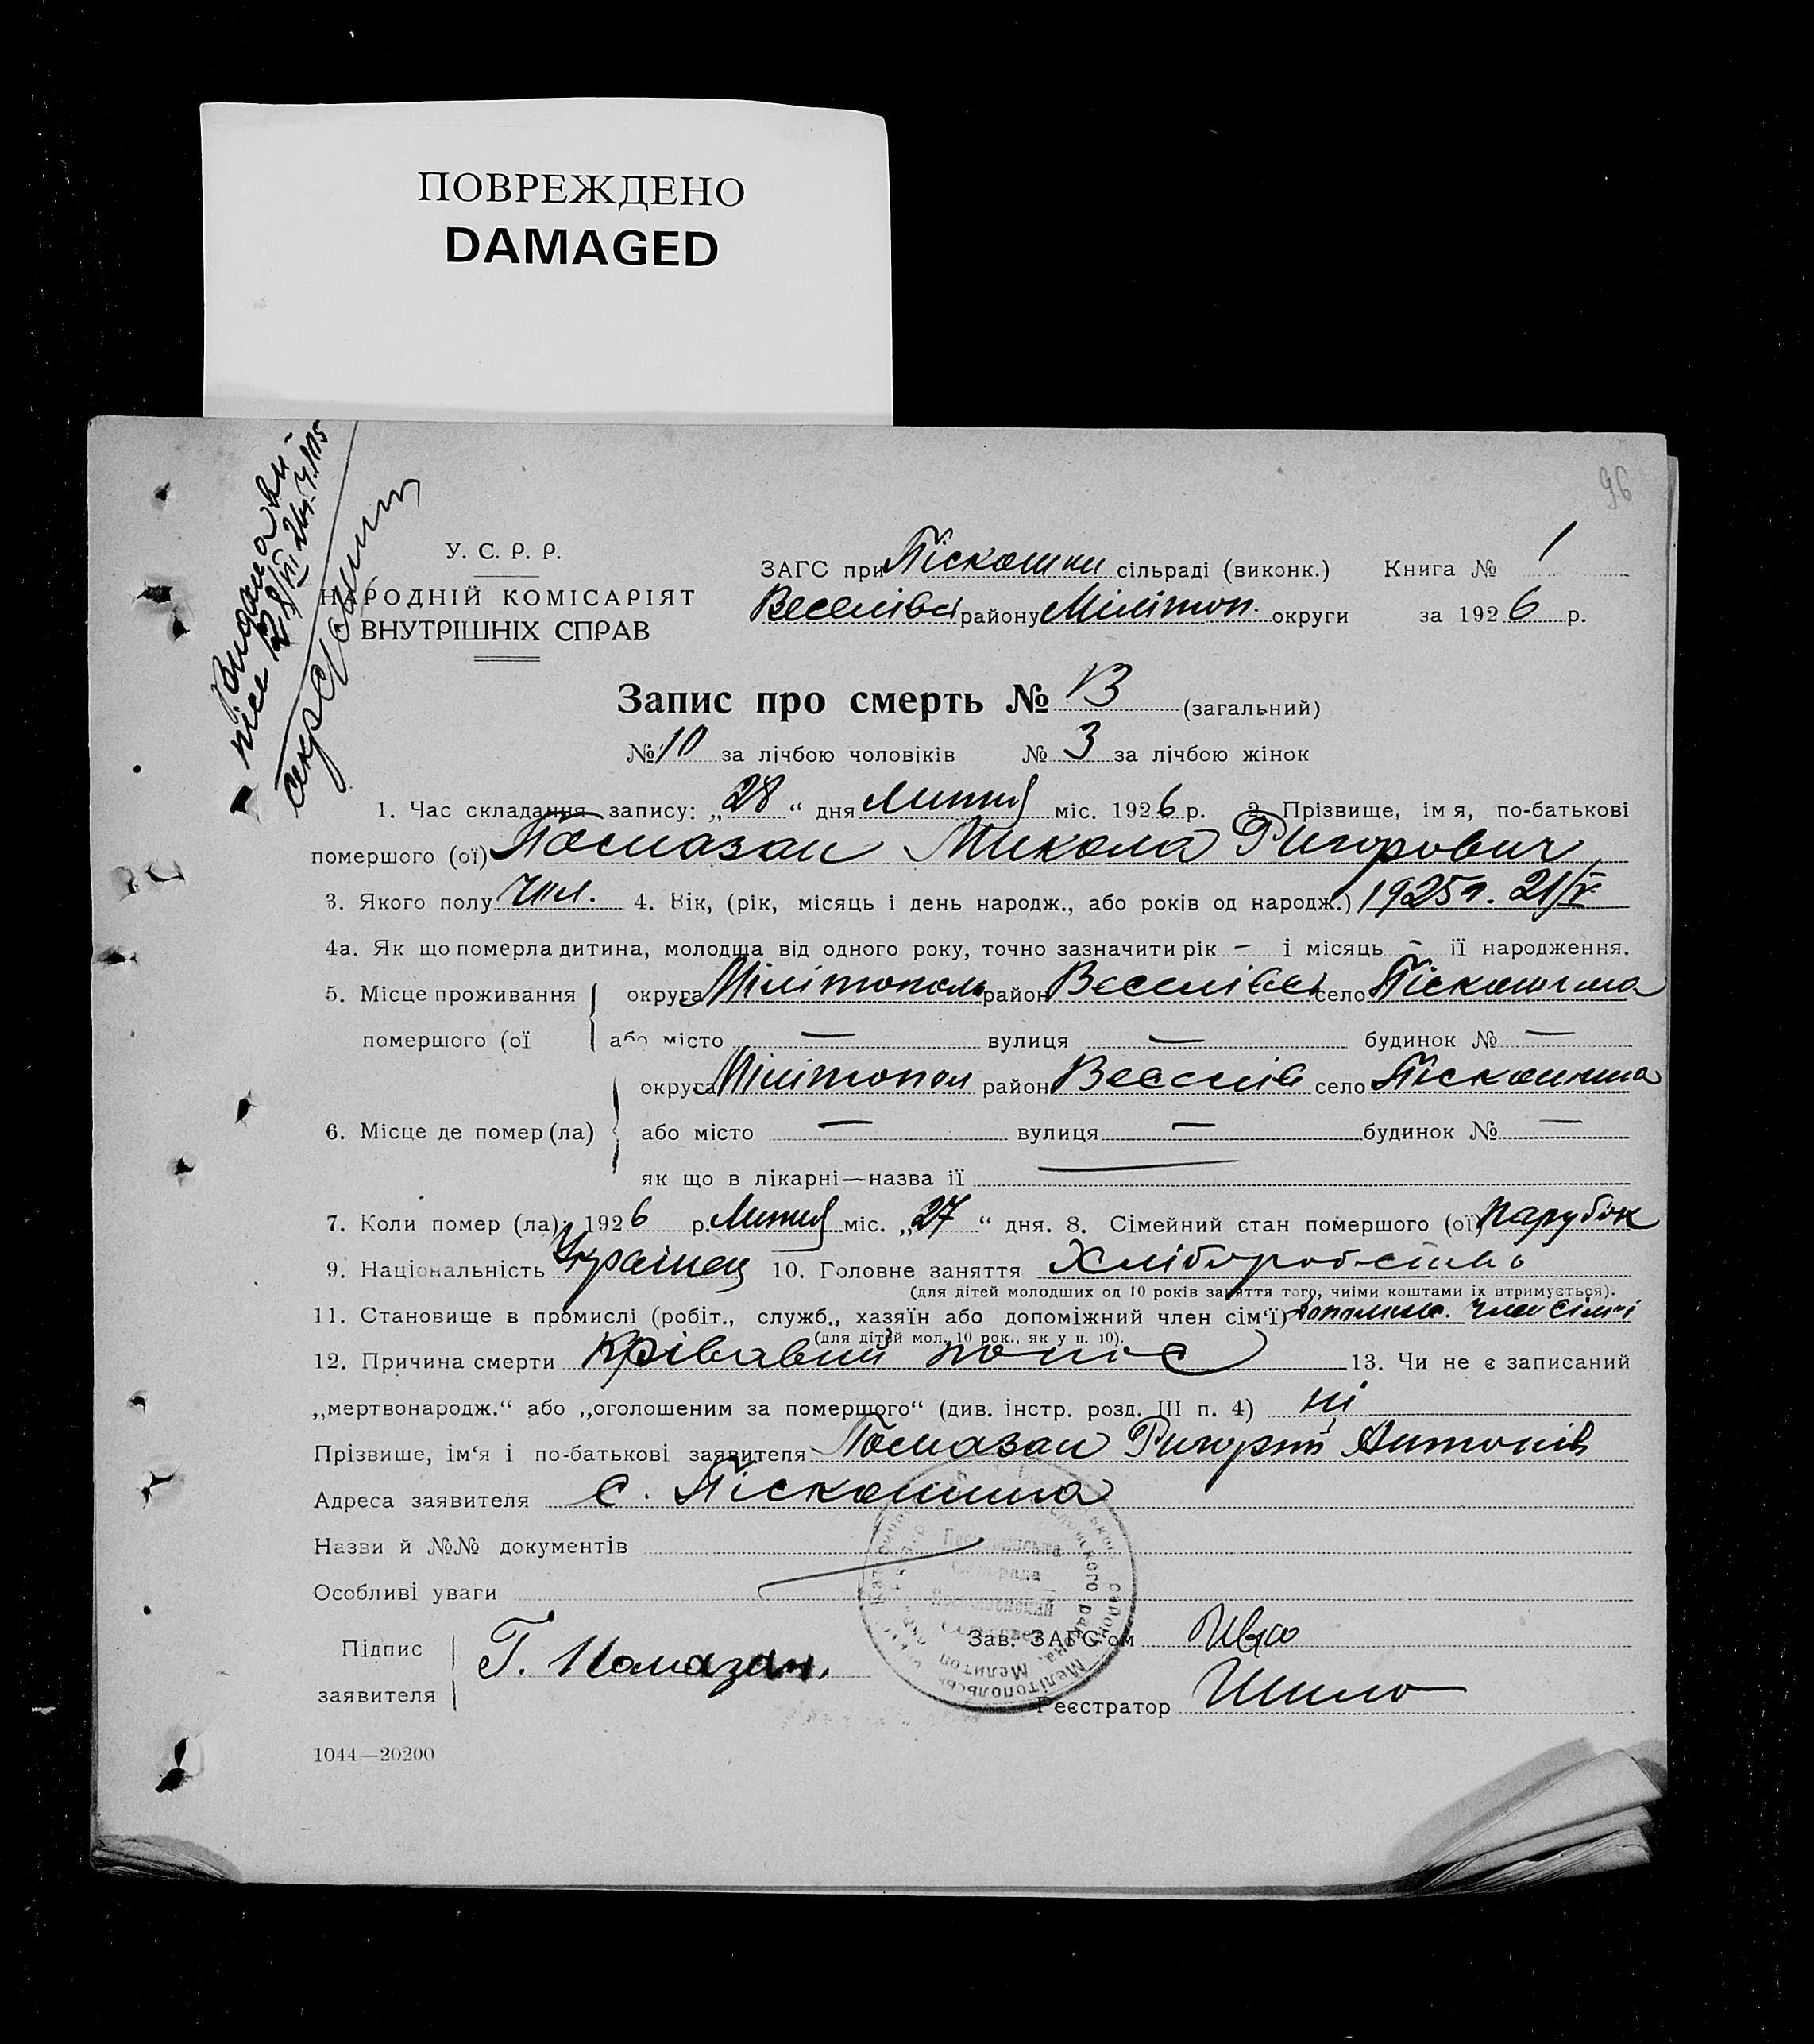 ПОВРЕЖДЕНО
DAMAGED
96
У. С. Р. Р.
НАРОДНІЙ КОМІСАРІЯТ
ВНУТРІШНІХ СПРАВ
ЗАГС при Піскошин сільраді (виконк.) Книга № 1
Веселівс району Мілітоп. округи за 1926 р.
Запис про смерть № 13 (загальний)
№ 10 за лічбою чоловіків № 3 за лічбою жінок
1. Час складання запису: „28“ дня Липня міс. 1926 р. 2. Прізвище, ім я, по-батькові
помершого (ої) Помазан Микола Ригорович
3. Якого полу чол. 4. Вік, (рік, місяць і день народж., або років од народж.) 1925 р. 21/V
4а. Як що померла дитина, молодща від одного року, точно зазначити рік — і місяць — її народження.
5. Місце проживання округа Мілітополь район Веселівс село Піскошина
помершого (ої або місто — вулиця — будинок № —
округа Мілітопол район Веселів село Піскошина
6. Місце де помер (ла) або місто — вулиця — будинок № —
як що в лікарні—назва її —
7. Коли помер (ла): 1926 р. Липня міс. „27“ дня. 8. Сімейний стан помершого (ої) парубок
9. Національність Українец 10. Головне заняття Хліборобство
(для дітей молодших од 10 років заняття того, чиїми коштами їх втримується).
11. Становище в промислі (робіт., служб., хазяїн або допоміжний член сім‘ї) допоміж. член сімї
(для дітей мол. 10 рок., як у п. 10).
12. Причина смерти Крівавий понос 13. Чи не є записаний
„мертвонародж.“ або „оголошеним за помершого“ (див. інстр. розд. III п. 4) ні
Прізвише, ім‘я і по-батькові заявителя Помазан Ригорій Антонів
Адреса заявителя с. Піскошина
Назви й №№ документів
Особливі уваги
Підпис
заявителя Г. Помазан.
Зав. ЗАГС‘ом
Реєстратор Шило
1044—20200